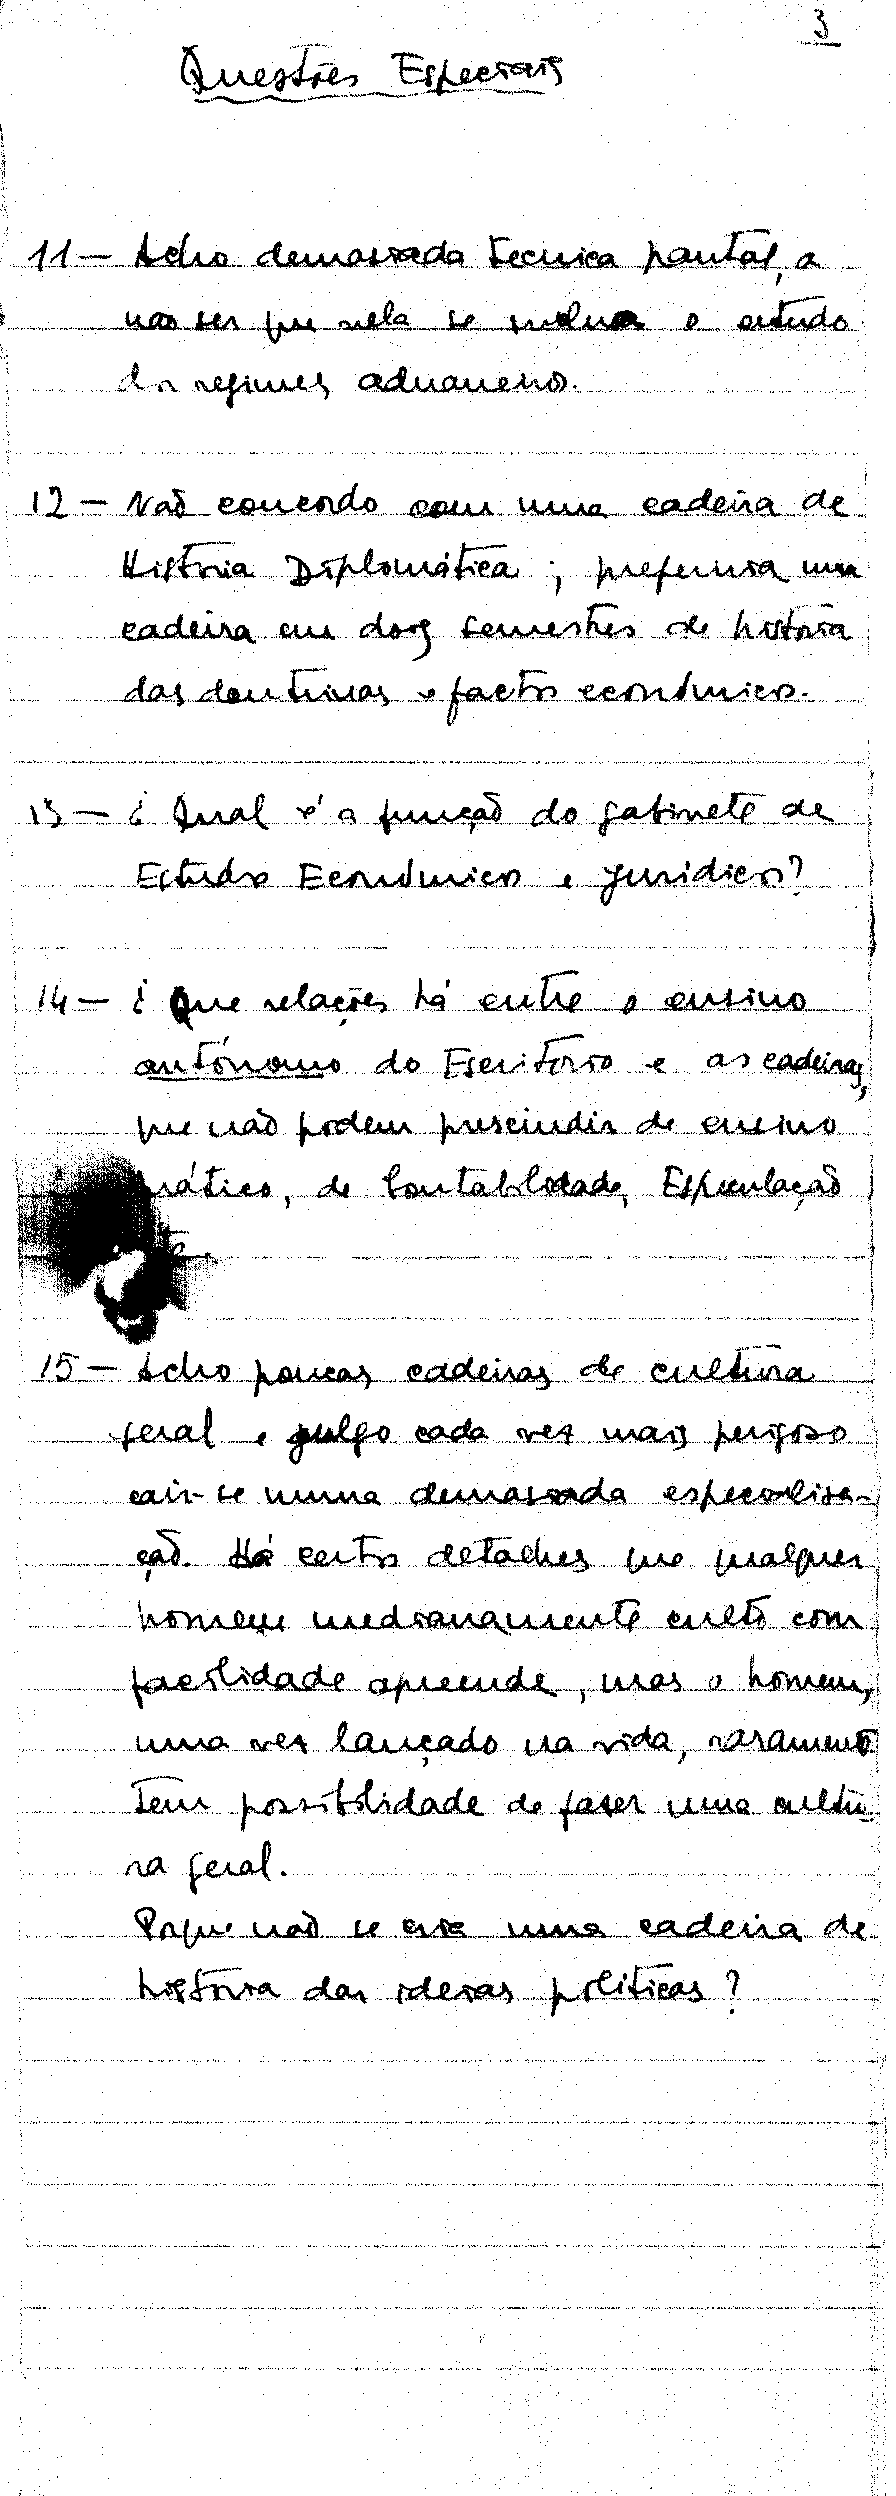 3
Questões Especiais
11 — Acho demasiada técnica pautal, a
não ser que nela se inclua o estudo
dos regimes aduaneiros.
12 — Não concordo com uma cadeira de
História Diplomática; preferiria uma
cadeira em dois semestres de história
das doutrinas e factos económicos.
13 — ¿ Qual é a função do gabinete de
Estudos Económicos e Jurídicos?
14 — ¿ Que relações há entre o ensino
autónomo do Escritório e as cadeiras,
que não podem prescindir de ensino
prático, de Contabilidade, Especulação
15 — Acho poucas cadeiras de cultura
geral e julgo cada vez mais perigoso
cair-se numa demasiada especialisa-
ção. Há certos detalhes que qualquer
homem medianamente culto com
facilidade apreende, mas o homem,
uma vez lançado na vida, raramente
tem possibilidade de fazer uma cultu-
ra geral.
Porque não se cria uma cadeira de
história das ideias políticas?